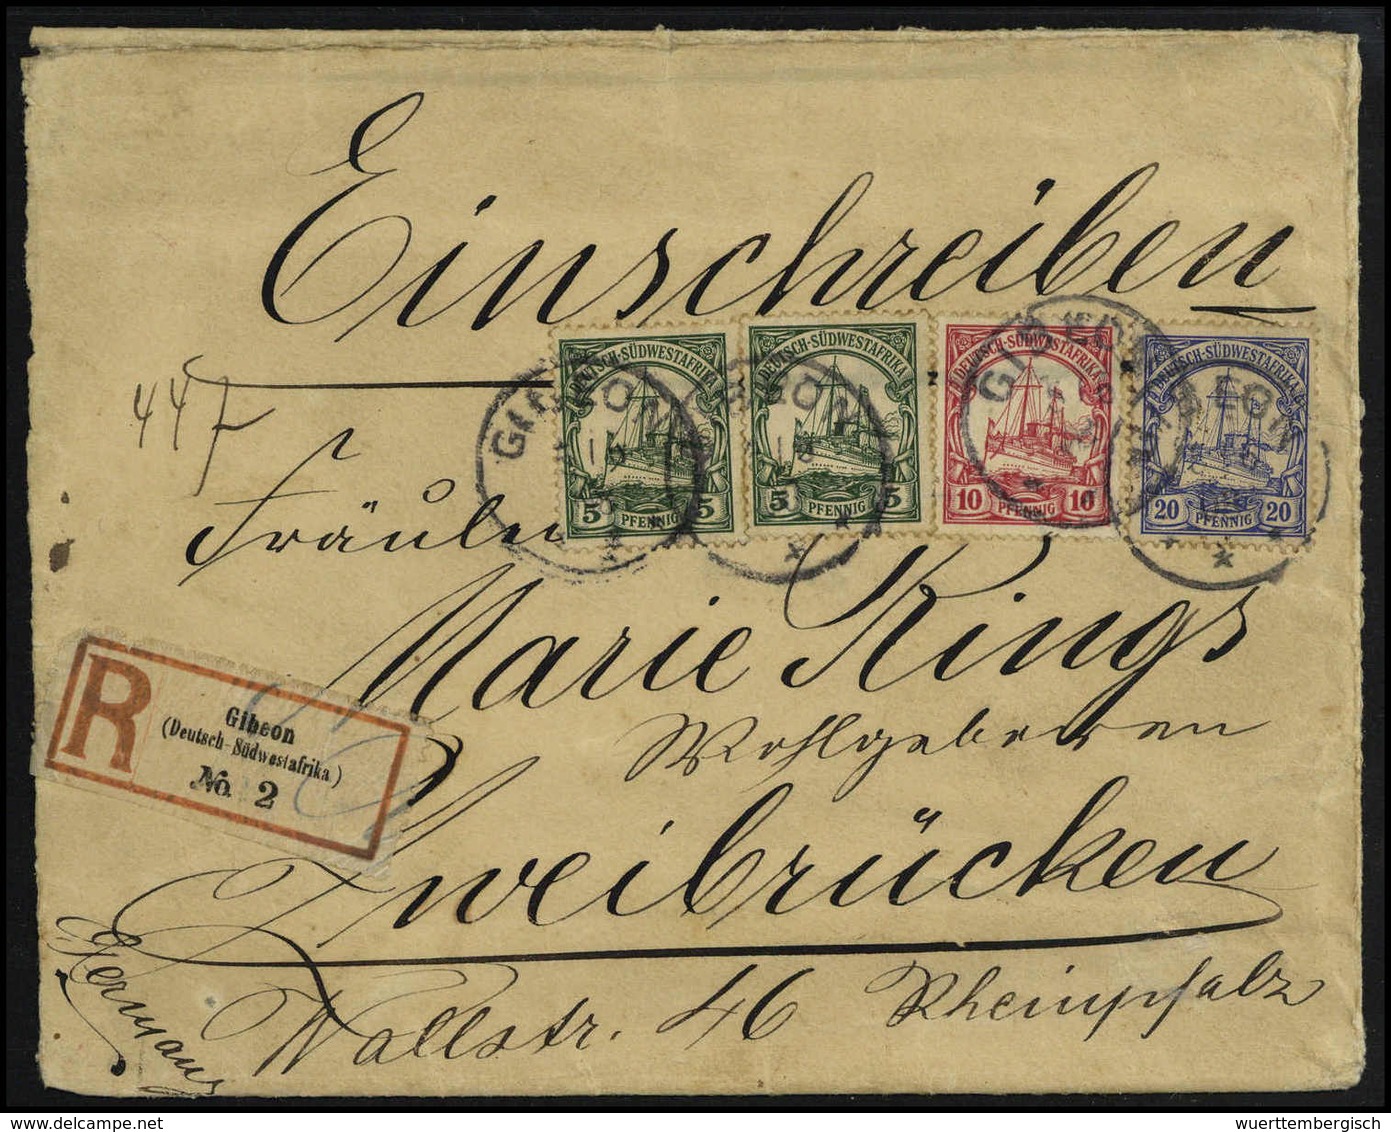 Einschreiben
DEUTSCH-SÜDWESTAFRIKA
5 PFENNIG 5
DEUTSCH-SÜDWESTAFRIKA
5 PFENNIG 5
DEUTSCH-SÜDWESTAFRIKA
10 PFENNIG 10
DEUTSCH-SÜDWESTAFRIKA
20 PFENNIG 20
GIBEON
GIBEON
GIBEON
GIBEON
447
Fräulein
Marie Rings
Wohlgeboren
R
Gibeon
(Deutsch-Südwestafrika)
No. 2
Zweibrücken
Wallstr. 46 Rheinpfalz
Germany
delcampe.net
wuerttembergisch